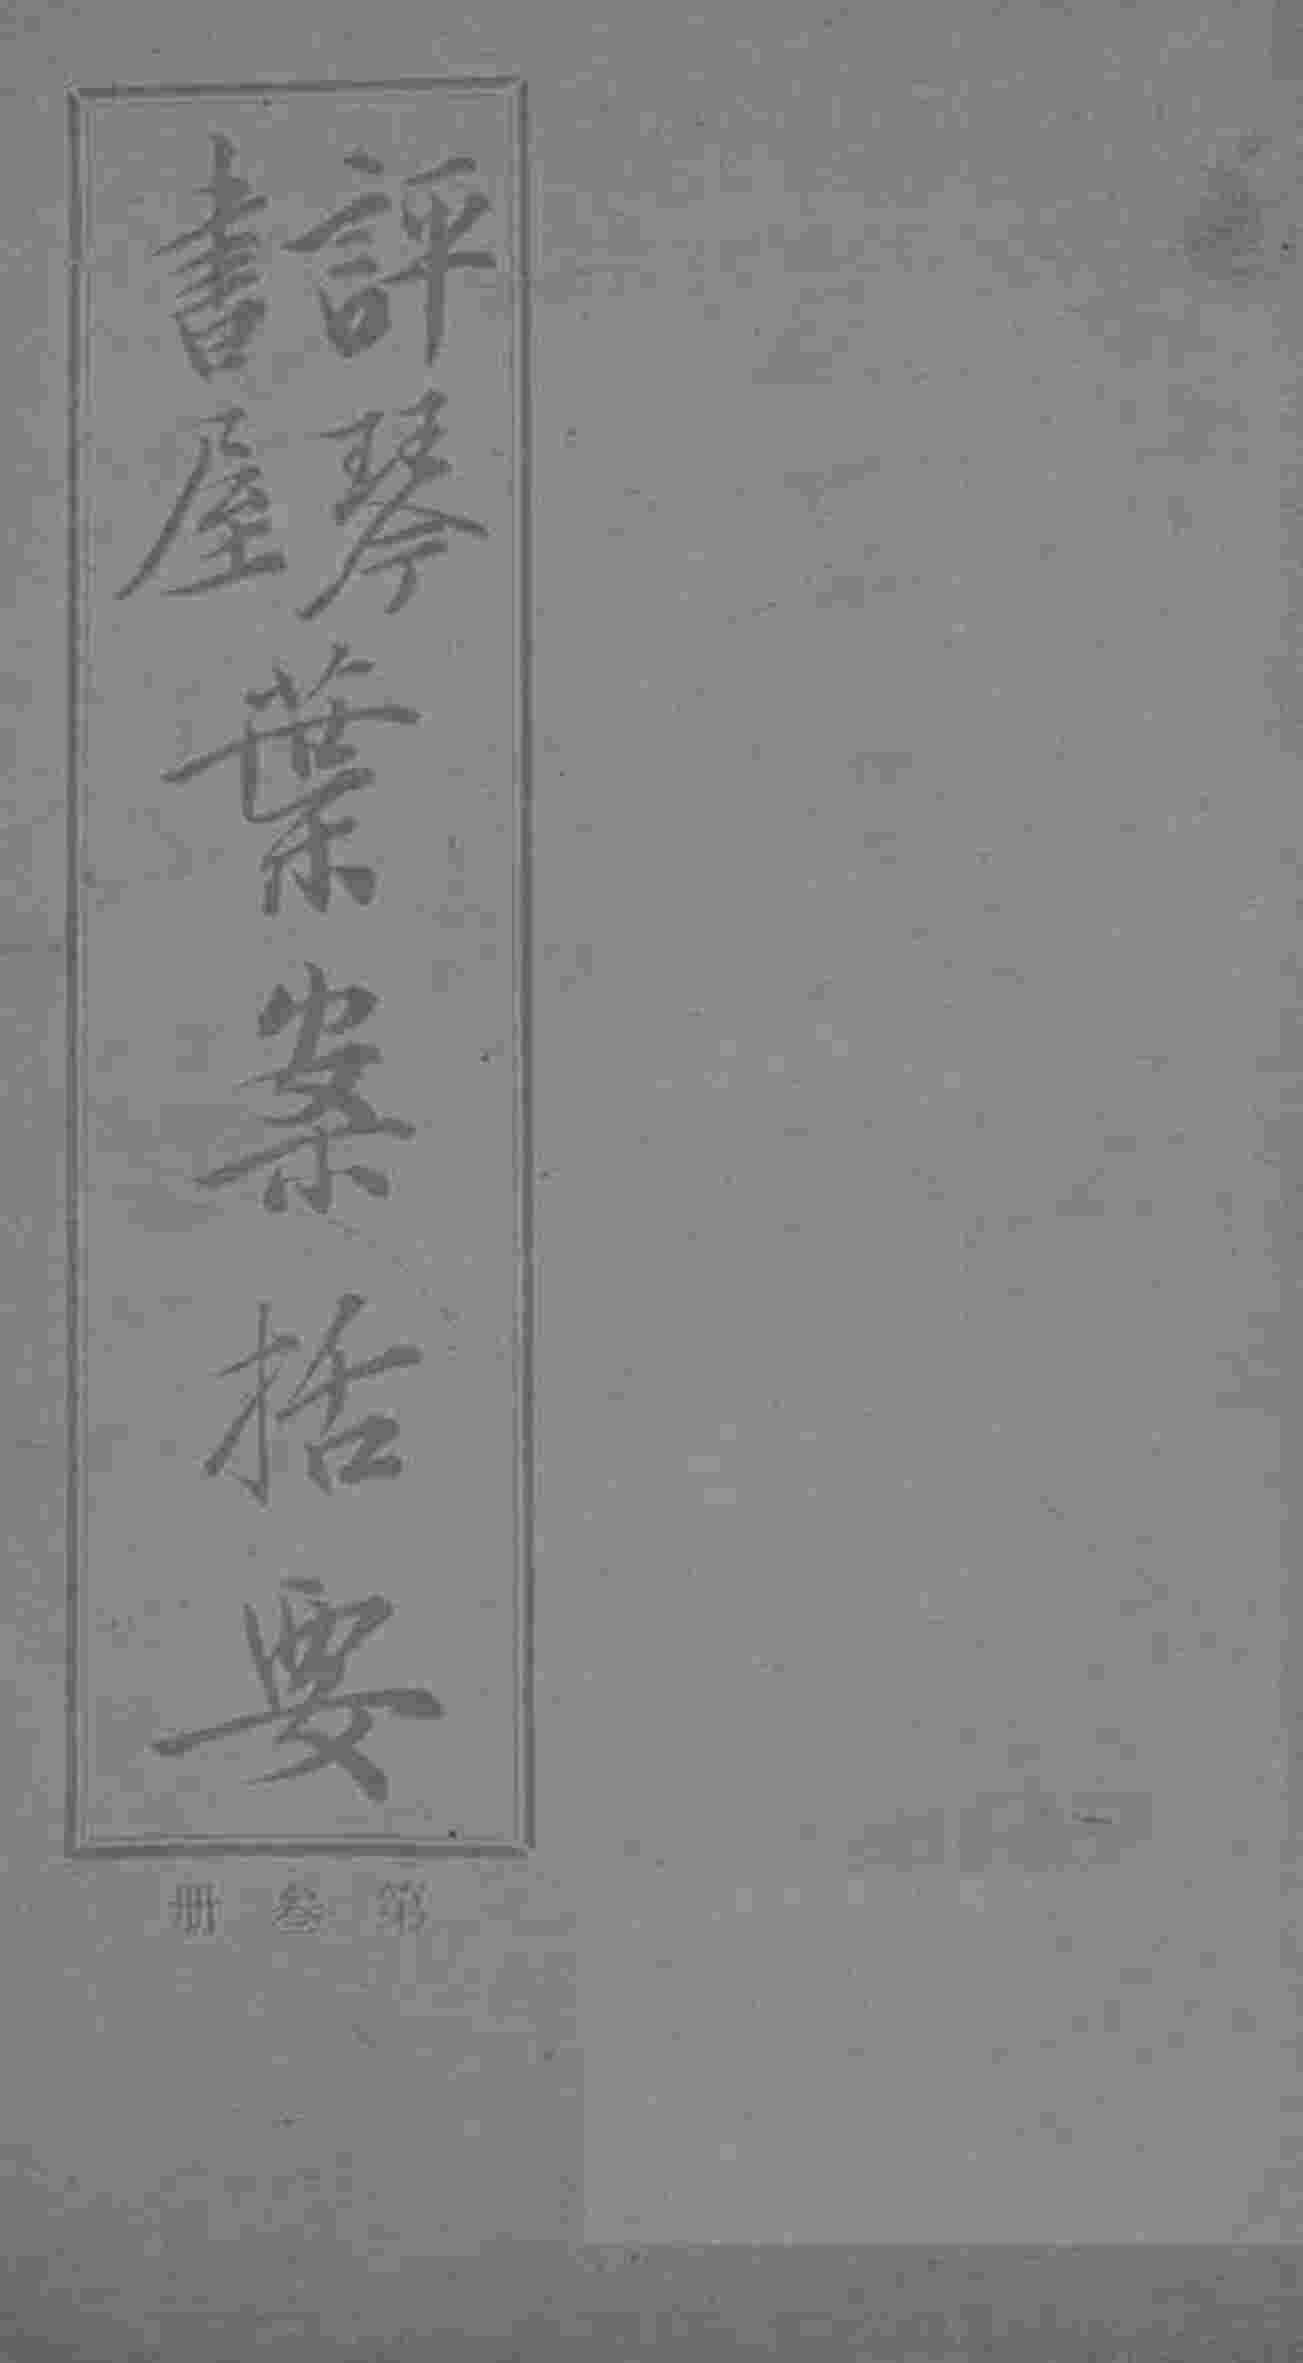 評琴
書屋
葉案括要
第叁册